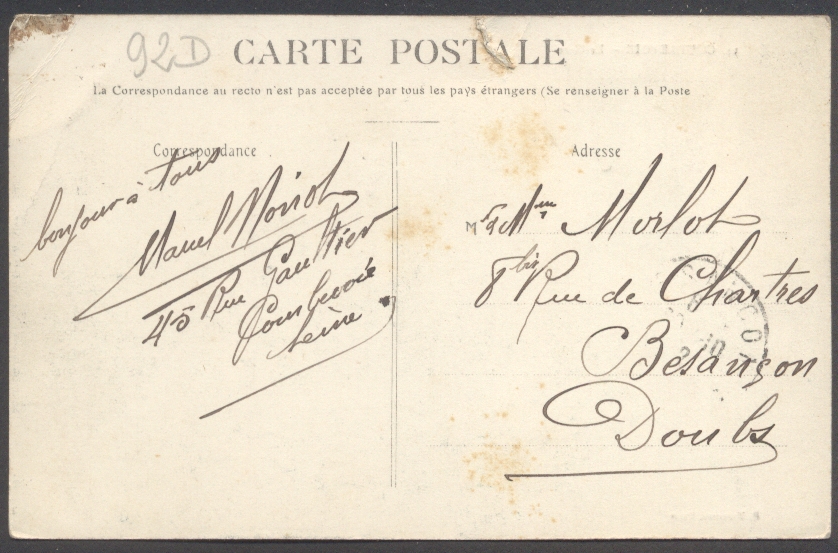 92D
CARTE POSTALE
La Correspondance au recto n'est pas acceptée par tous les pays étrangers (Se renseigner à la Poste
Correspondance
bonjour à tous
Marcel Noirot
45 Rue Gaultier
Courbevoie
Seine
Adresse
Mr & Mme Morlot
8 bis Rue de Chartres
Besançon
Doubs